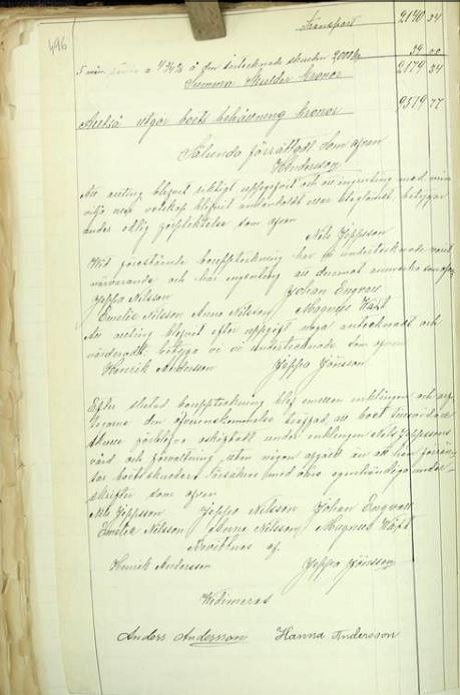 496
Transport 2140 34
5 mån ränta a 4¾% å den intecknade skulden 2000 kr
Summa Skulder kronor 2179 34
Alltså utgör boets behållning kronor 9519 77
Sålunda förrättadt som ofvan
HAndersson
Att allting blifvit riktigt uppgifvit och att ingenting med min
vilja eller vetskap blifvit undandoldt eller uteglömdt betygar
under edlig förpliktelse som ofvan
Nels Jeppsson
Wid förestående bouppteckning har vi undertecknade varit
närvarande och har ingenting att deremot anmärka som ofvan
Jeppa Nilsson Johan Engvall
Emelie Nilsson Anna Nilsson Magnus Häst
Att allting blifvit efter uppgift noga antecknadt och
värderadt, betyga vi undertecknade som ofvan
Henrik Andersson Jeppa Jönsson
Efter slutad bouppteckning blef emellan enklingen och arf-
tagarne den öfverenskommelse träffad att boet tillsvidare
skulle förblifva oskiftadt under enklingen Nels Jeppssons
vård och förvaltning, utan någon afgift
skrifter som ofvan
Nels Jeppsson Jeppa Nilsson Johan Engvall
Emelie Nilsson Anna Nilsson Magnus Häst
Bevittnas af
Henrik Andersson Jeppa Jönsson
Widimeras
Anders Andersson Hanna Andersson